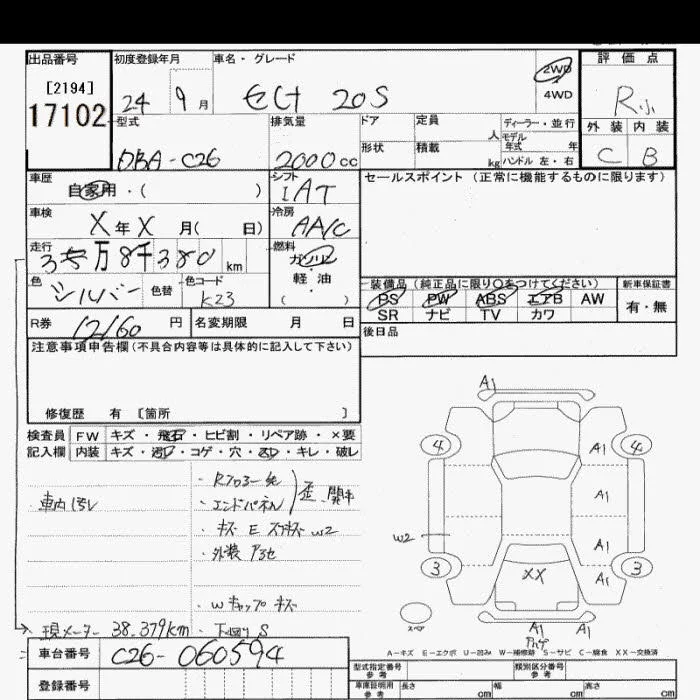 出品番号 初度登録年月 車名・グレード 評価点
[2194] 17102 24 9月 セレナ 20S 2WD 4WD R小
外装 内装
C B
型式 排気量 ドア 定員 人 ディーラー・並行
モデル年式 年
DBA-C26 2000cc 形状 積載 kg ハンドル 左・右
車歴 シフト セールスポイント(正常に機能するものに限ります)
自家用・( ) IAT
車検 冷房
X年X月( 日) AA/C
走行 燃料
万8千380km ガソリン
軽・油
( )
色 色替 色コード 装備品(純正品に限り○をつけてください) 新車保証書
シルバー K23 PS PW ABS エアB AW 有・無
SR ナビ TV カワ
R券 12160円 名変期限 月 日 後日品
注意事項申告欄(不具合内容等は具体的に記入して下さい)
修復歴 有 [箇所 ]
検査員 FW キズ・飛石・ヒビ割・リペア跡・×要
記入欄 内装 キズ・汚レ・コゲ・穴・切レ・キレ・破レ
・車内汚レ
・Rフロアー
・エンドパネル
・キズ E スリキズ W2
・外装
・Wキャップ キズ
現メーター 38.379km ・下廻り S
車台番号 C26-060594
登録番号
A1
4 A1 4
A1
W2 A1
3 A1 3
XX
A1 A1
A-キズ E-エクボ U-凹み W-補修跡 S-サビ C-腐食 XX-交換済
型式指定番号 参考 類別区分番号 参考
車庫証明用 参考 長さ cm 幅 cm 高さ cm